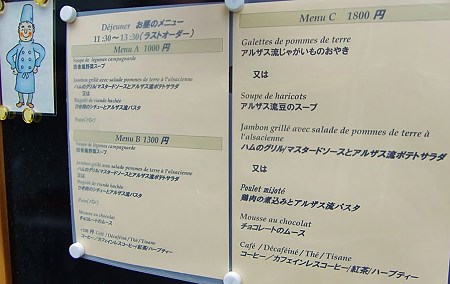 Déjeuner お昼のメニュー
11:30～13:30(ラストオーダー)
Menu A 1000 円
Soupe de légumes campagnarde
田舎風野菜スープ
Jambon grillé avec salade pommes de terre à l'alsacienne
ハムのグリル/マスタードソースとアルザス流ポテトサラダ
又は
Ragoût de viande hachée
ひき肉のシチューとアルザス流パスタ
Menu B 1300 円
Soupe de légumes campagnarde
田舎風野菜スープ
Jambon grillé avec salade pommes de terre à l'alsacienne
ハムのグリル/マスタードソースとアルザス流ポテトサラダ
又は
Ragoût de viande hachée
ひき肉のシチューとアルザス流パスタ
Mousse au chocolat
チョコレートのムース
+100 円 Café / Décaféiné / Thé / Tisane
コーヒー/カフェインレスコーヒー/紅茶/ハーブティー
Menu C 1800 円
Galettes de pommes de terre
アルザス流じゃがいものおやき
又は
Soupe de haricots
アルザス流豆のスープ
Jambon grillé avec salade de pommes de terre à
l'alsacienne
ハムのグリル/マスタードソースとアルザス流ポテトサラダ
又は
Poulet mijoté
鶏肉の煮込みとアルザス流パスタ
Mousse au chocolat
チョコレートのムース
Café / Décaféiné / Thé / Tisane
コーヒー/カフェインレスコーヒー/紅茶/ハーブティー